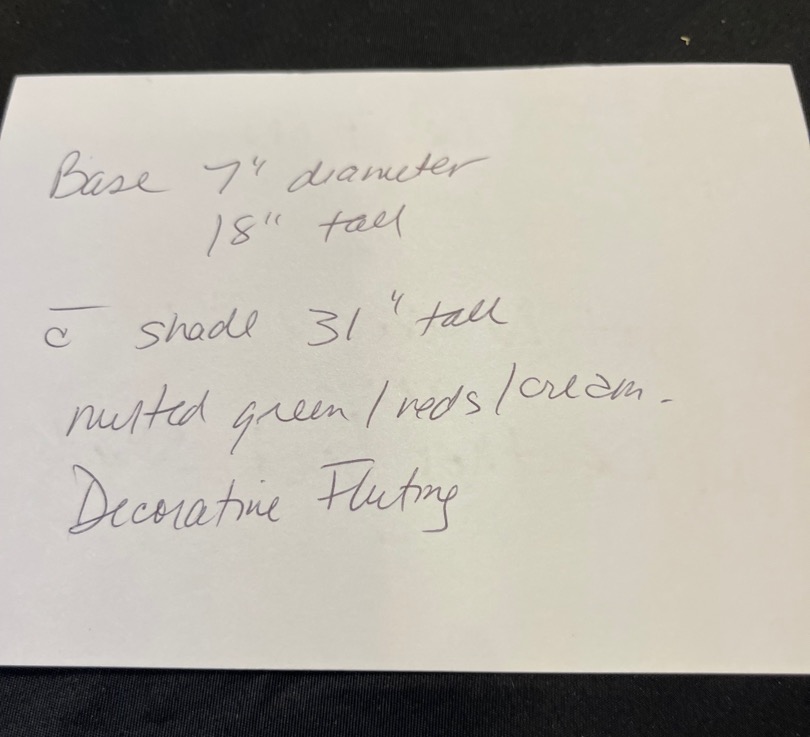 Base 7" diameter
18" tall
c̄ shade 31" tall
green / reds / cream.
Decorative Fluting